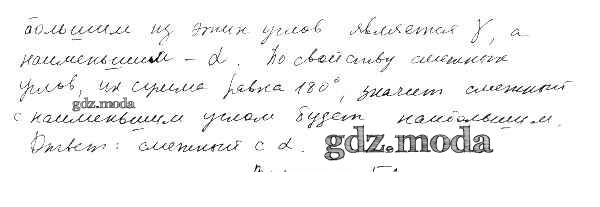 большим из этих углов является γ, а
наименьшим - α. По свойству смежных
углов, их сумма равна 180°, значит смежный
gdz.moda
с наименьшим углом будет наибольшим.
Ответ: смежный с α. gdz.moda